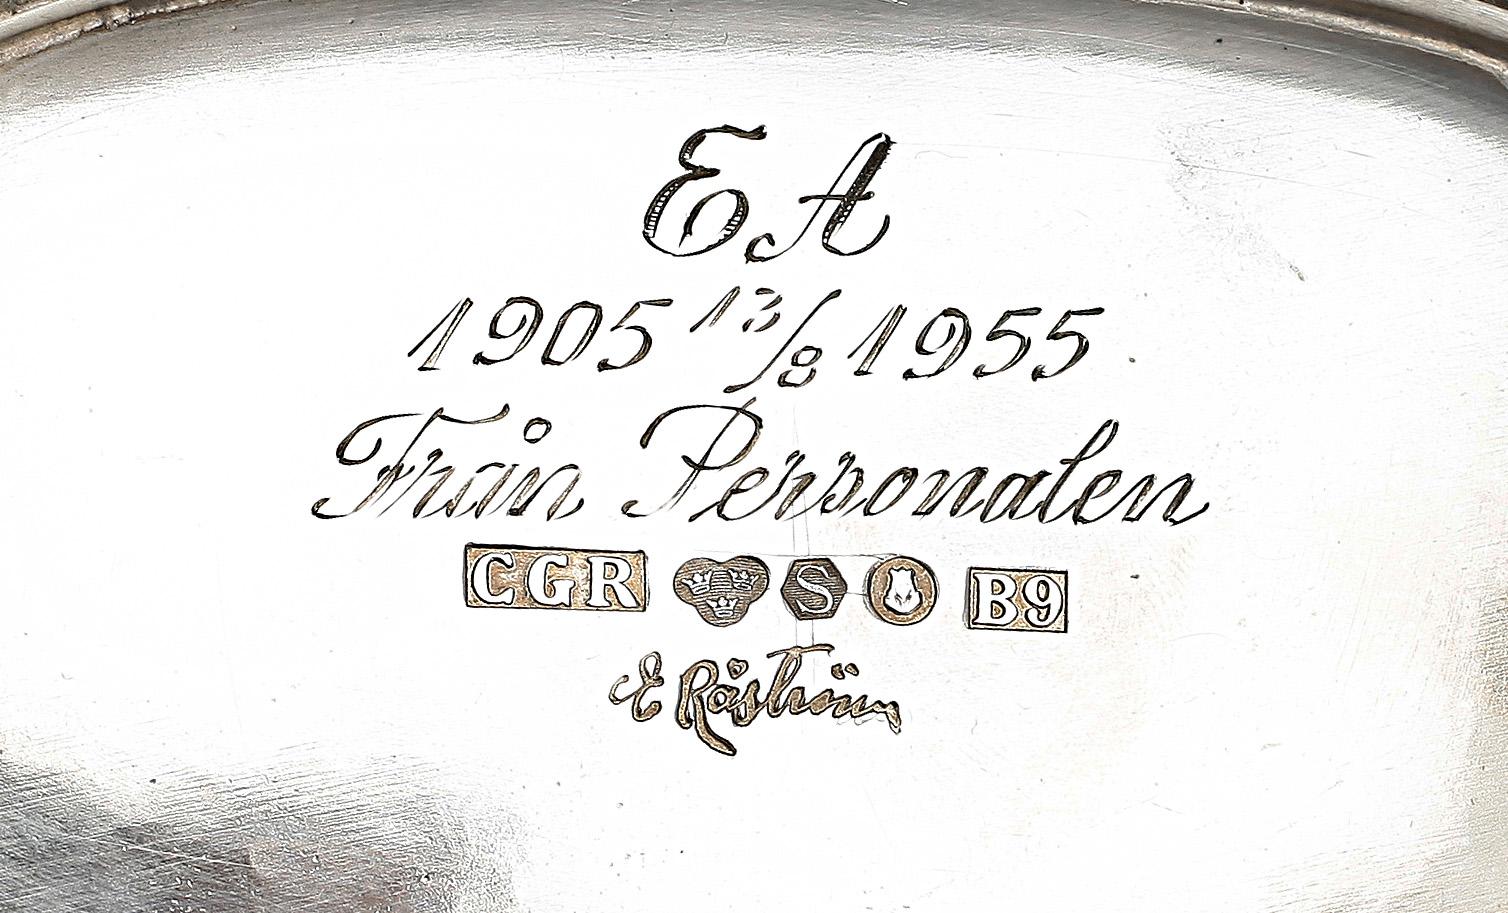 EA
1905 13/8 1955
Från Personalen
CGR S B9
E Råström